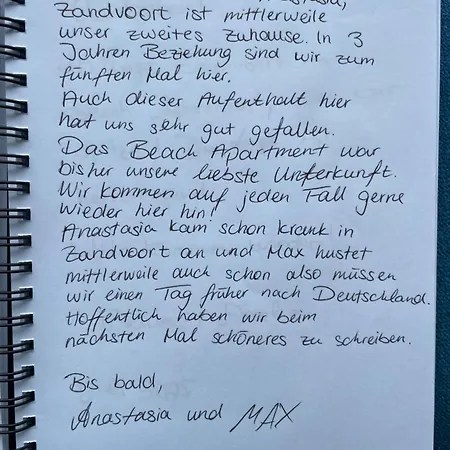 Zandvoort ist mittlerweile
unser zweites Zuhause. In 3
Jahren Beziehung sind wir zum
fünften Mal hier.
Auch dieser Aufenthalt hier
hat uns sehr gut gefallen.
Das Beach Apartment war
bisher unsere liebste Unterkunft.
Wir kommen auf jeden Fall gerne
wieder hier hin!
Anastasia kam schon krank in
Zandvoort an und Max hustet
mittlerweile auch schon also müssen
wir einen Tag früher nach Deutschland.
Hoffentlich haben wir beim
nächsten Mal schöneres zu schreiben.
Bis bald,
Anastasia und MAX